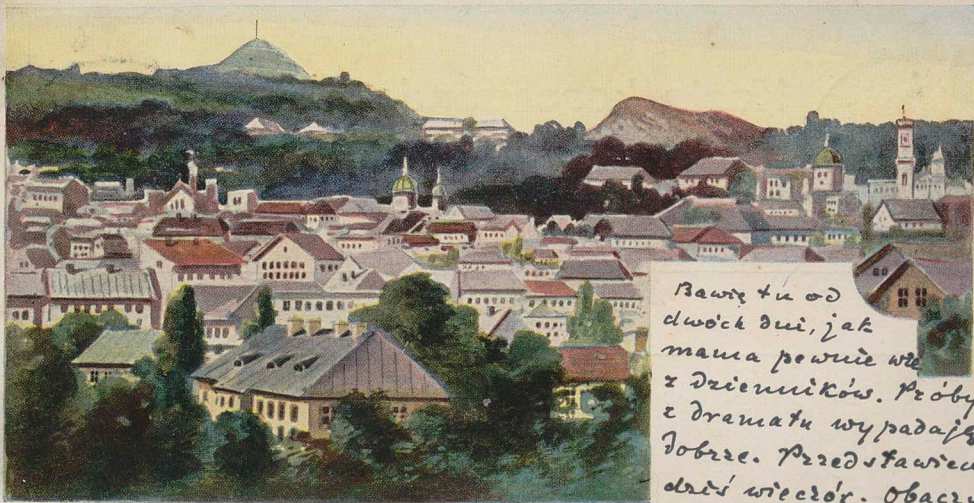 Bawię tu od
dwóch dni, jak
mama pewnie wie
z dzienników. Próby
z dramatu wypadaję
dobrze. Przedstawien
dziś wieczór. Obacz